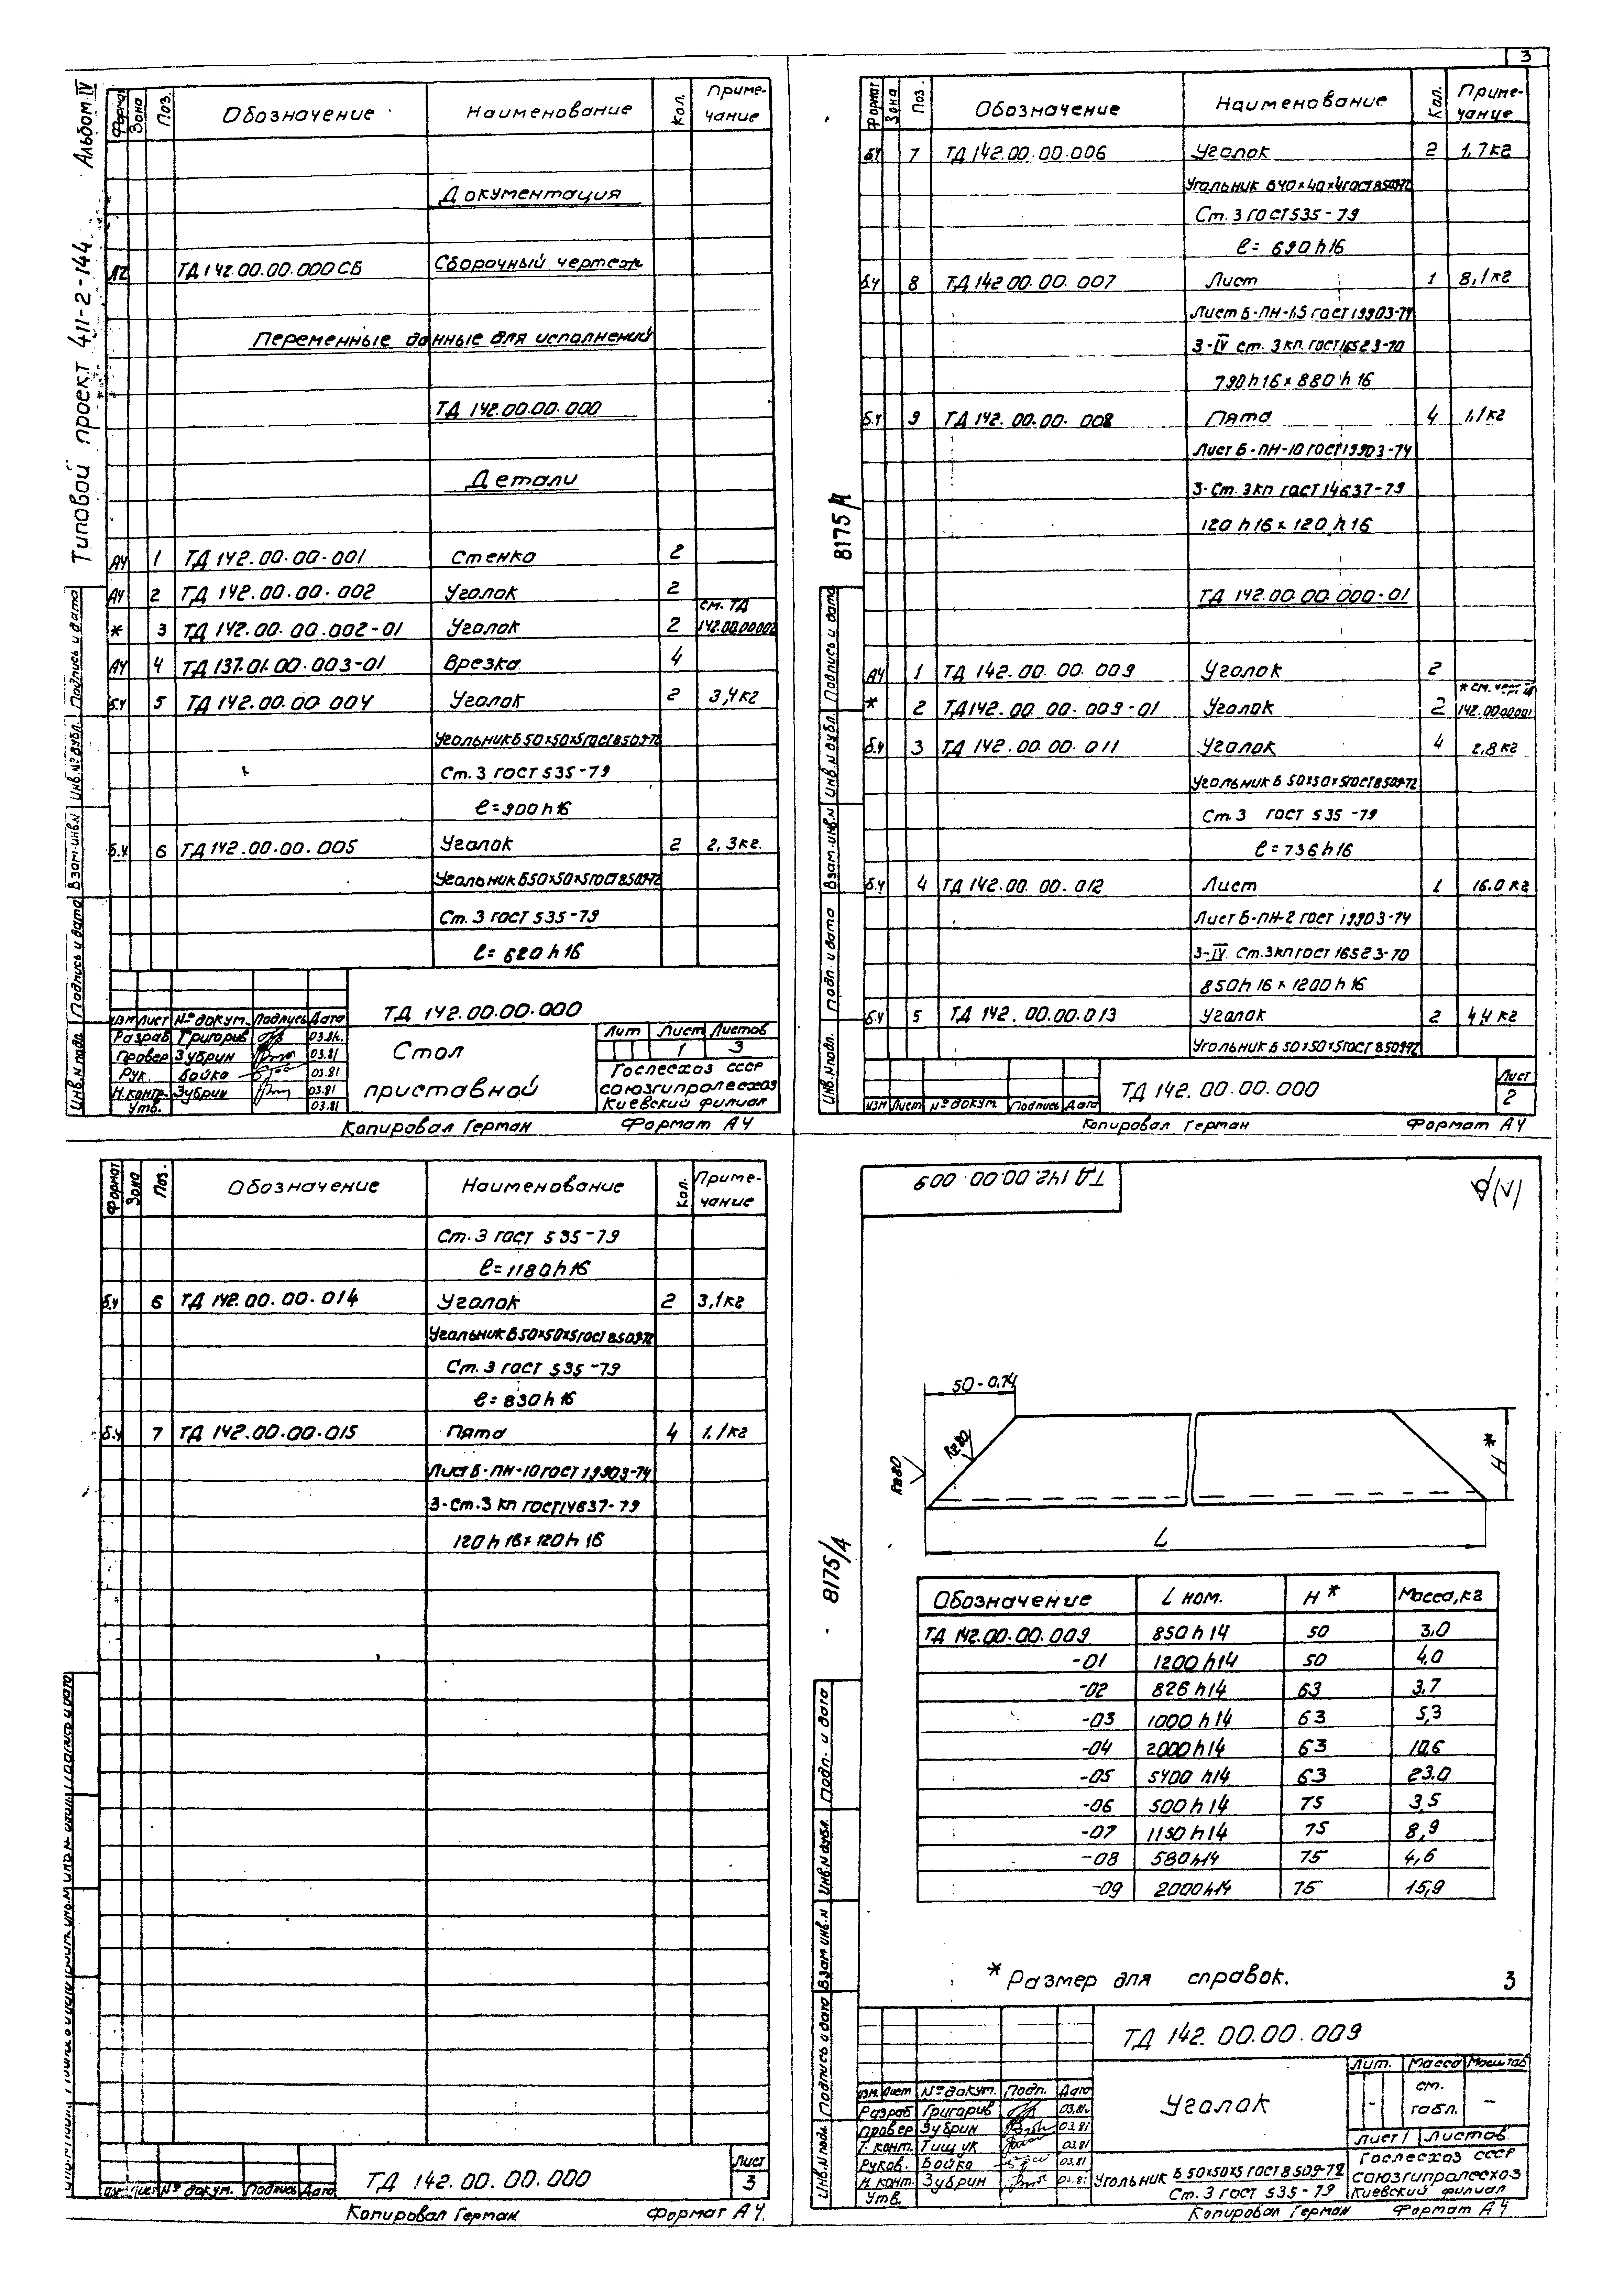 3
Альбом IV
Типовой проект 411-2-144
Формат Зона Поз. Обозначение Наименование Кол. Приме-
чание
Документация
А2 ТД 142.00.00.000 СБ Сборочный чертеж
Переменные данные для исполнений
ТД 142.00.00.000
Детали
А4 1 ТД 142.00.00.001 Стенка 2
А4 2 ТД 142.00.00.002 Уголок 2
см. ТД
* 3 ТД 142.00.00.002-01 Уголок 2 142.00.00.002
А4 4 ТД 137.01.00.003-01 Врезка 4
б.ч 5 ТД 142.00.00.004 Уголок 2 3,4кг
Угольник Б 50×50×5 ГОСТ 8509-72
Ст. 3 ГОСТ 535-79
ℓ=900h16
б.ч. 6 ТД 142.00.00.005 Уголок 2 2,3кг.
Угольник Б 50×50×5 ГОСТ 8509-72
Ст. 3 ГОСТ 535-79
ℓ=620h16
ТД 142.00.00.000
Изм Лист № докум. Подпись Дата
Разраб Григорив 03.81г.
Провер Зубрин 03.81
Рук. Бойко 03.81
Н.контр. Зубрин 03.81
Утв. 03.81
Стол
приставной
Лит Лист Листов
1 3
Гослесхоз СССР
Союзгипролесхоз
Киевский филиал
Копировал Герман Формат А4
Инв.N подл. Подпись и дата Взам.инв.N Инв.№ дубл. Подпись и дата
Формат Зона Поз. Обозначение Наименование Кол. Приме-
чание
б.ч 7 ТД 142.00.00.006 Уголок 2 1,7кг
Угольник Б 40×40×4 ГОСТ 8509-72
Ст. 3 ГОСТ 535-79
ℓ=690h16
б.ч 8 ТД 142.00.00.007 Лист 1 8,1кг
Лист Б-ПН-1.5 ГОСТ 19903-74
3-IV ст. 3кп. ГОСТ 16523-70
790h16×880h16
б.ч 9 ТД 142.00.00.008 Пята 4 1,1кг
Лист Б-ПН-10 ГОСТ 19903-74
3-Ст. 3кп ГОСТ 14637-79
120h16×120h16
ТД 142.00.00.000-01
А4 1 ТД 142.00.00.009 Уголок 2
* см. черт ТД
* 2 ТД 142.00.00.009-01 Уголок 2 142.00.00.001
б.ч 3 ТД 142.00.00.011 Уголок 4 2,8кг
Угольник Б 50×50×5 ГОСТ 8509-72
Ст. 3 ГОСТ 535-79
ℓ=736h16
б.ч 4 ТД 142.00.00.012 Лист 1 16.0кг
Лист Б-ПН-2 ГОСТ 19903-74
3-IV. Ст.3кп ГОСТ 16523-70
850h16×1200h16
б.ч 5 ТД 142.00.00.013 Уголок 2 4,4 кг
Угольник Б 50×50×5 ГОСТ 8509-72
8175/А
Инв.N подл. Подп и дата Взам.инв.N Инв.N дубл. Подпись и дата
Изм Лист № докум. Подпись Дата
ТД 142.00.00.000
Лист
2
Копировал Герман Формат А4
Формат Зона Поз. Обозначение Наименование Кол. Приме-
чание
Ст. 3 ГОСТ 535-79
ℓ=1180h16
б.ч 6 ТД 142.00.00.014 Уголок 2 3,1кг
Угольник Б 50×50×5 ГОСТ 8509-72
Ст. 3 ГОСТ 535-79
ℓ=830h16
б.ч 7 ТД 142.00.00.015 Пята 4 1,1кг
Лист Б-ПН-10 ГОСТ 19903-74
3-Ст.3 кп ГОСТ 14637-79
120h16×120h16
Изм Лист № докум. Подпись Дата
ТД 142.00.00.000
Лист
3
Копировал Герман Формат А4.
ТД 142.00.00.009
(√)
50-0,74
Rz80
Rz80
H*
L
8175/А
Обозначение L ном. H* Масса,кг
ТД 142.00.00.009 850h14 50 3,0
-01 1200h14 50 4,0
-02 826h14 63 3,7
-03 1000h14 63 5,3
-04 2000h14 63 10,6
-05 5400h14 63 23.0
-06 500h14 75 3,5
-07 1150h14 75 8,9
-08 580h14 75 4,6
-09 2000h14 75 15,9
* Размер для справок.
3
ТД 142.00.00.009
Изм. Лист № докум. Подп. Дата
Разраб Григорив 03.81г.
Провер Зубрин 03.81
Т. конт. Тищик 03.81
Руков. Бойко 03.81
Н. конт. Зубрин 03.81
Утв.
Уголок
Лит. Масса Масштаб
- см.
табл. -
Лист 1 Листов.
Угольник Б 50×50×5 ГОСТ 8509-72
Ст. 3 ГОСТ 535-79
Гослесхоз СССР
Союзгипролесхоз
Киевский филиал
Инв.N подл. Подпись и дата Взам инв.N Инв.N дубл. Подп. и дата
Копировал Герман Формат А4